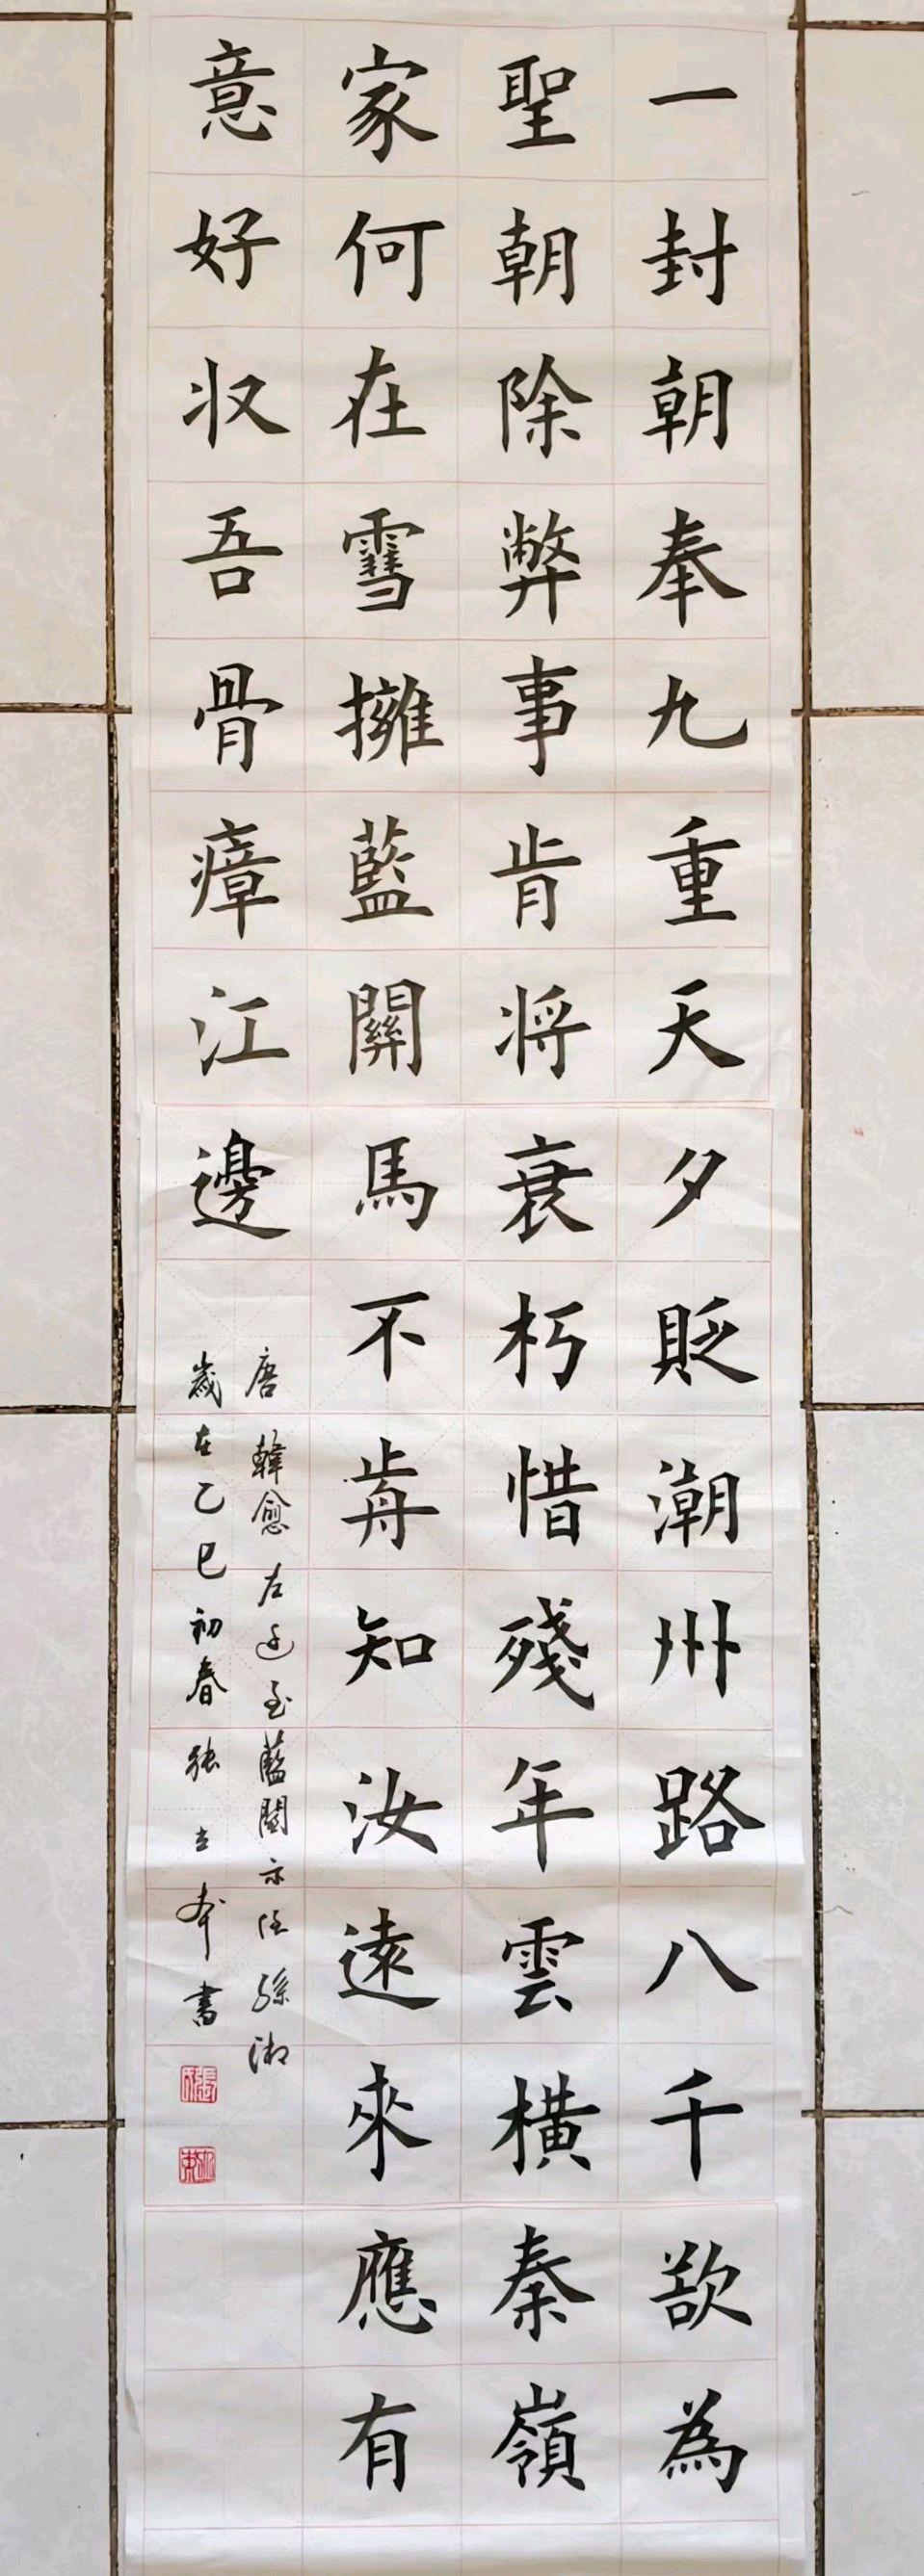 一封朝奉九重天夕貶潮州路八千欲為
聖朝除弊事肯將衰朽惜殘年雲橫秦嶺
家何在雪擁藍關馬不歬知汝遠來應有
意好収吾骨瘴江邊
唐韓愈左迁至藍關示侄孫湘
歲在乙巳初春張立本書